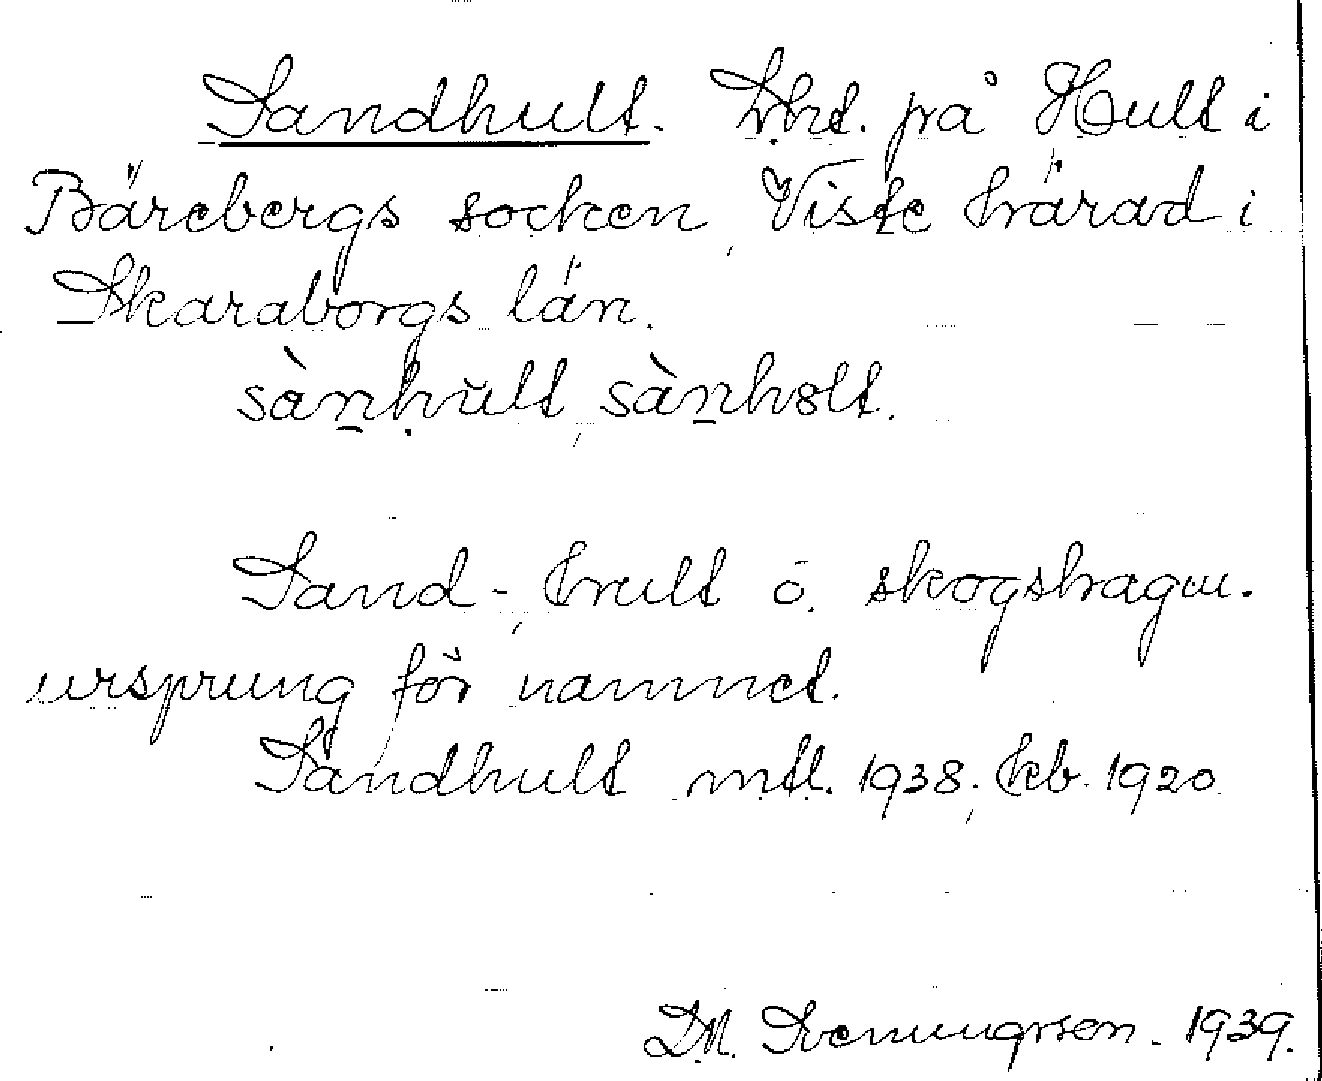 Sandhult. Lht. på Hult i
Bärebergs socken, Viste härad i
Skaraborgs län.
sànhult, sànhult.
Sand-, hult o. skogshagen.
ursprung för namnet.
Sandhult mtl. 1938; kb. 1920
D.N. 1939.